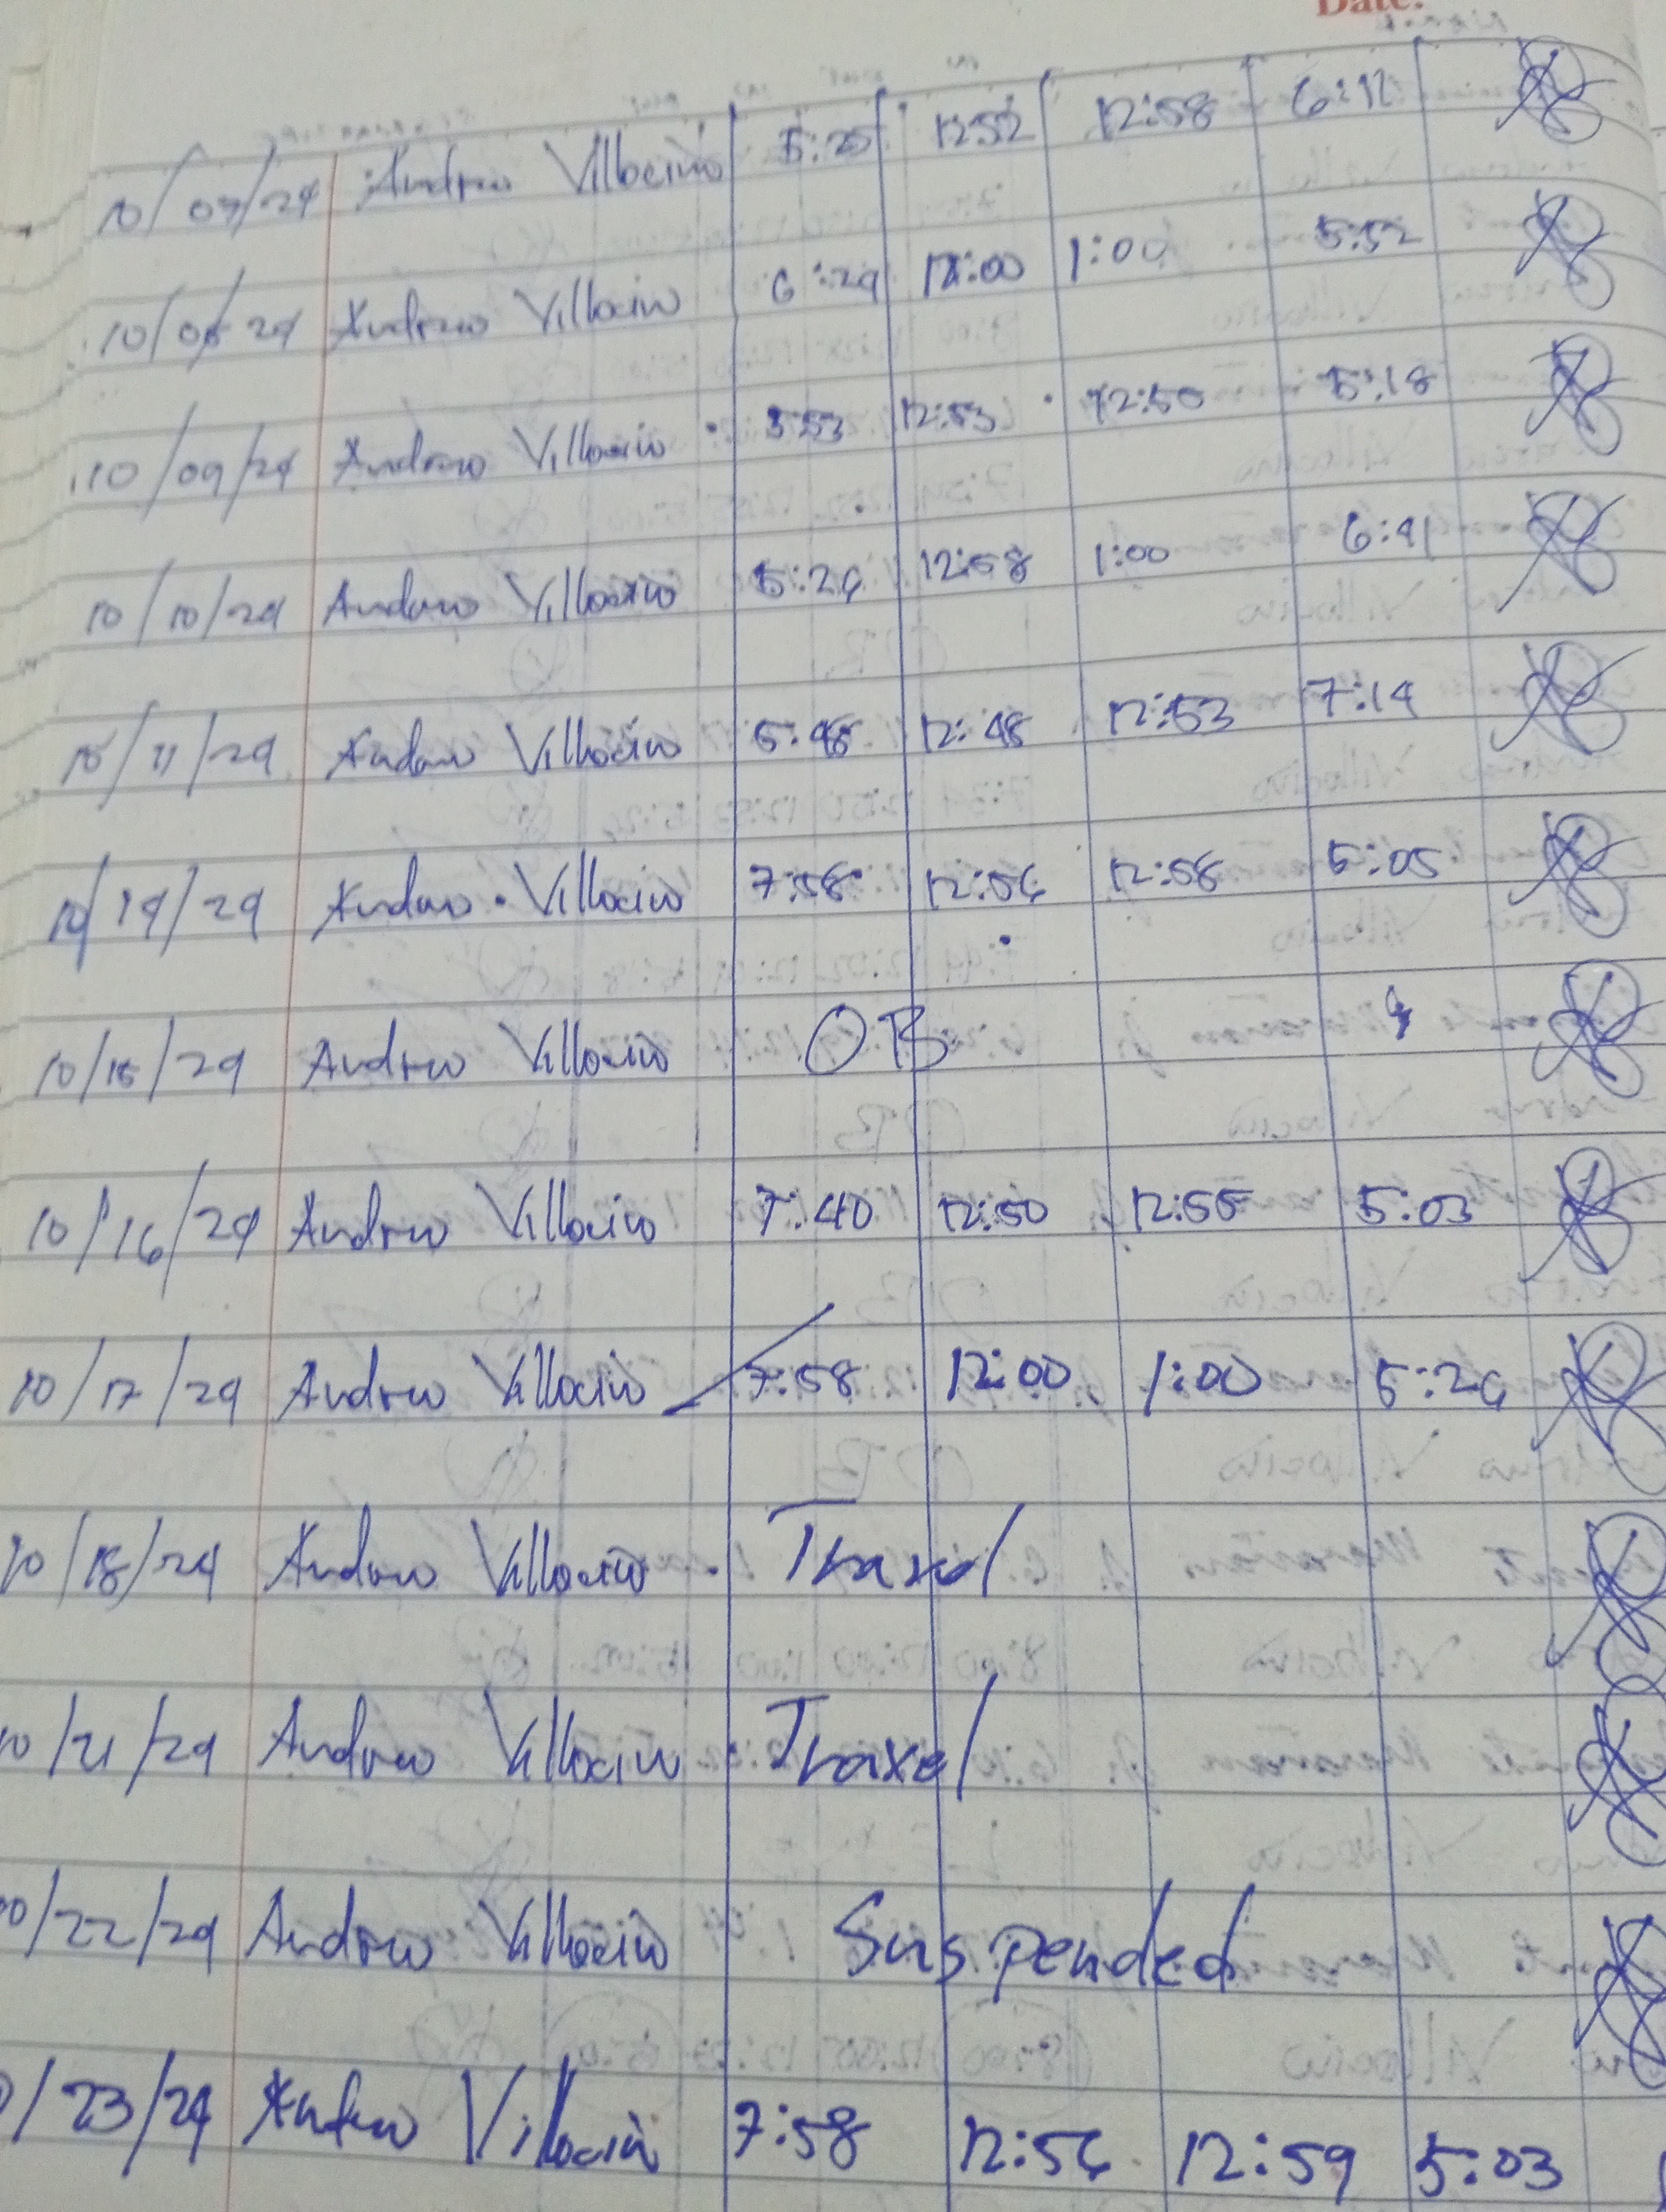 Date:
10/07/24 Andrew Villocino 5:25 12:52 12:58 6:12
10/08/24 Andrew Villocino 6:29 12:00 1:00 5:52
10/09/24 Andrew Villocino 5:53 12:53 12:50 5:18
10/10/24 Andrew Villocino 5:26 12:58 1:00 6:41
10/11/24 Andrew Villocino 5:48 12:48 12:53 7:14
10/14/24 Andrew Villocino 7:58 12:56 12:58 5:05
10/15/24 Andrew Villocino OB
10/16/24 Andrew Villocino 7:40 12:50 12:55 5:03
10/17/24 Andrew Villocino 7:58 12:00 1:00 5:26
10/18/24 Andrew Villocino Travel
10/21/24 Andrew Villocino Travel
10/22/24 Andrew Villocino Suspended
/23/24 Andrew Villocino 7:58 12:56 12:59 5:03